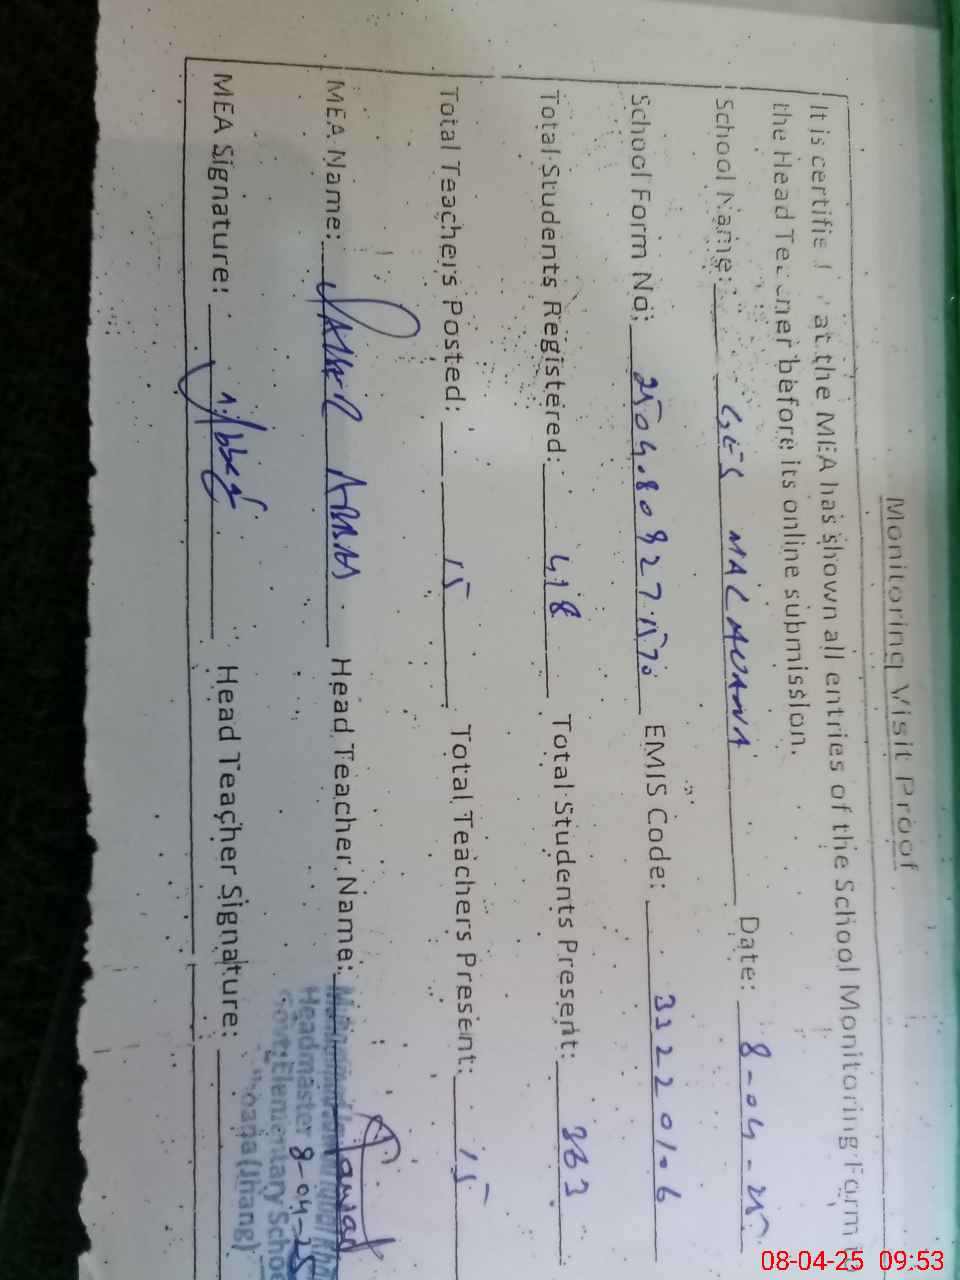 Monitoring Visit Proof
It is certified that the MEA has shown all entries of the School Monitoring Form to
the Head Teacher before its online submission.
School Name: GES MALMUANA Date: 8-04-25
School Form No: 2504080827570 EMIS Code: 33220106
Total Students Registered: 418 Total Students Present: 363
Total Teachers Posted: 15 Total Teachers Present: 15
MEA Name: Abbas Head Teacher Name:
Headmaster
Govt. Elementary School
(Jhang)
8-04-25
MEA Signature: Head Teacher Signature:
08-04-25 09:53